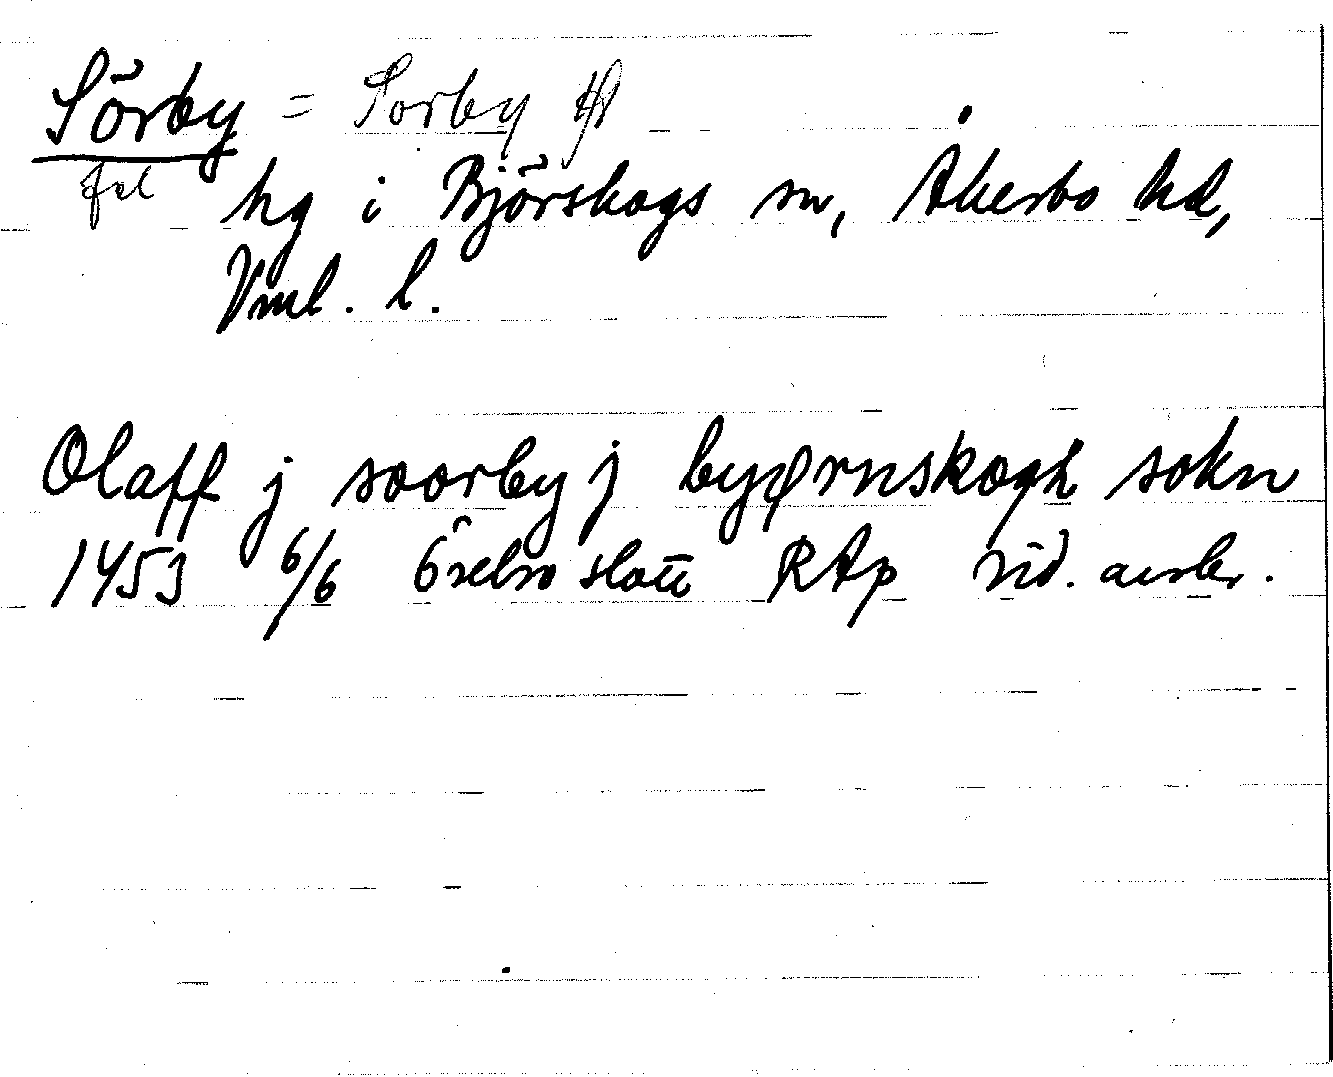 Sörby = Sorby
fel hg i Björskogs sn, Åkerbo hd,
Vml. l.
Olaff j soorby j byørnskogh sokn
1453 6/6 Örebro slott RAp vid. avskr.